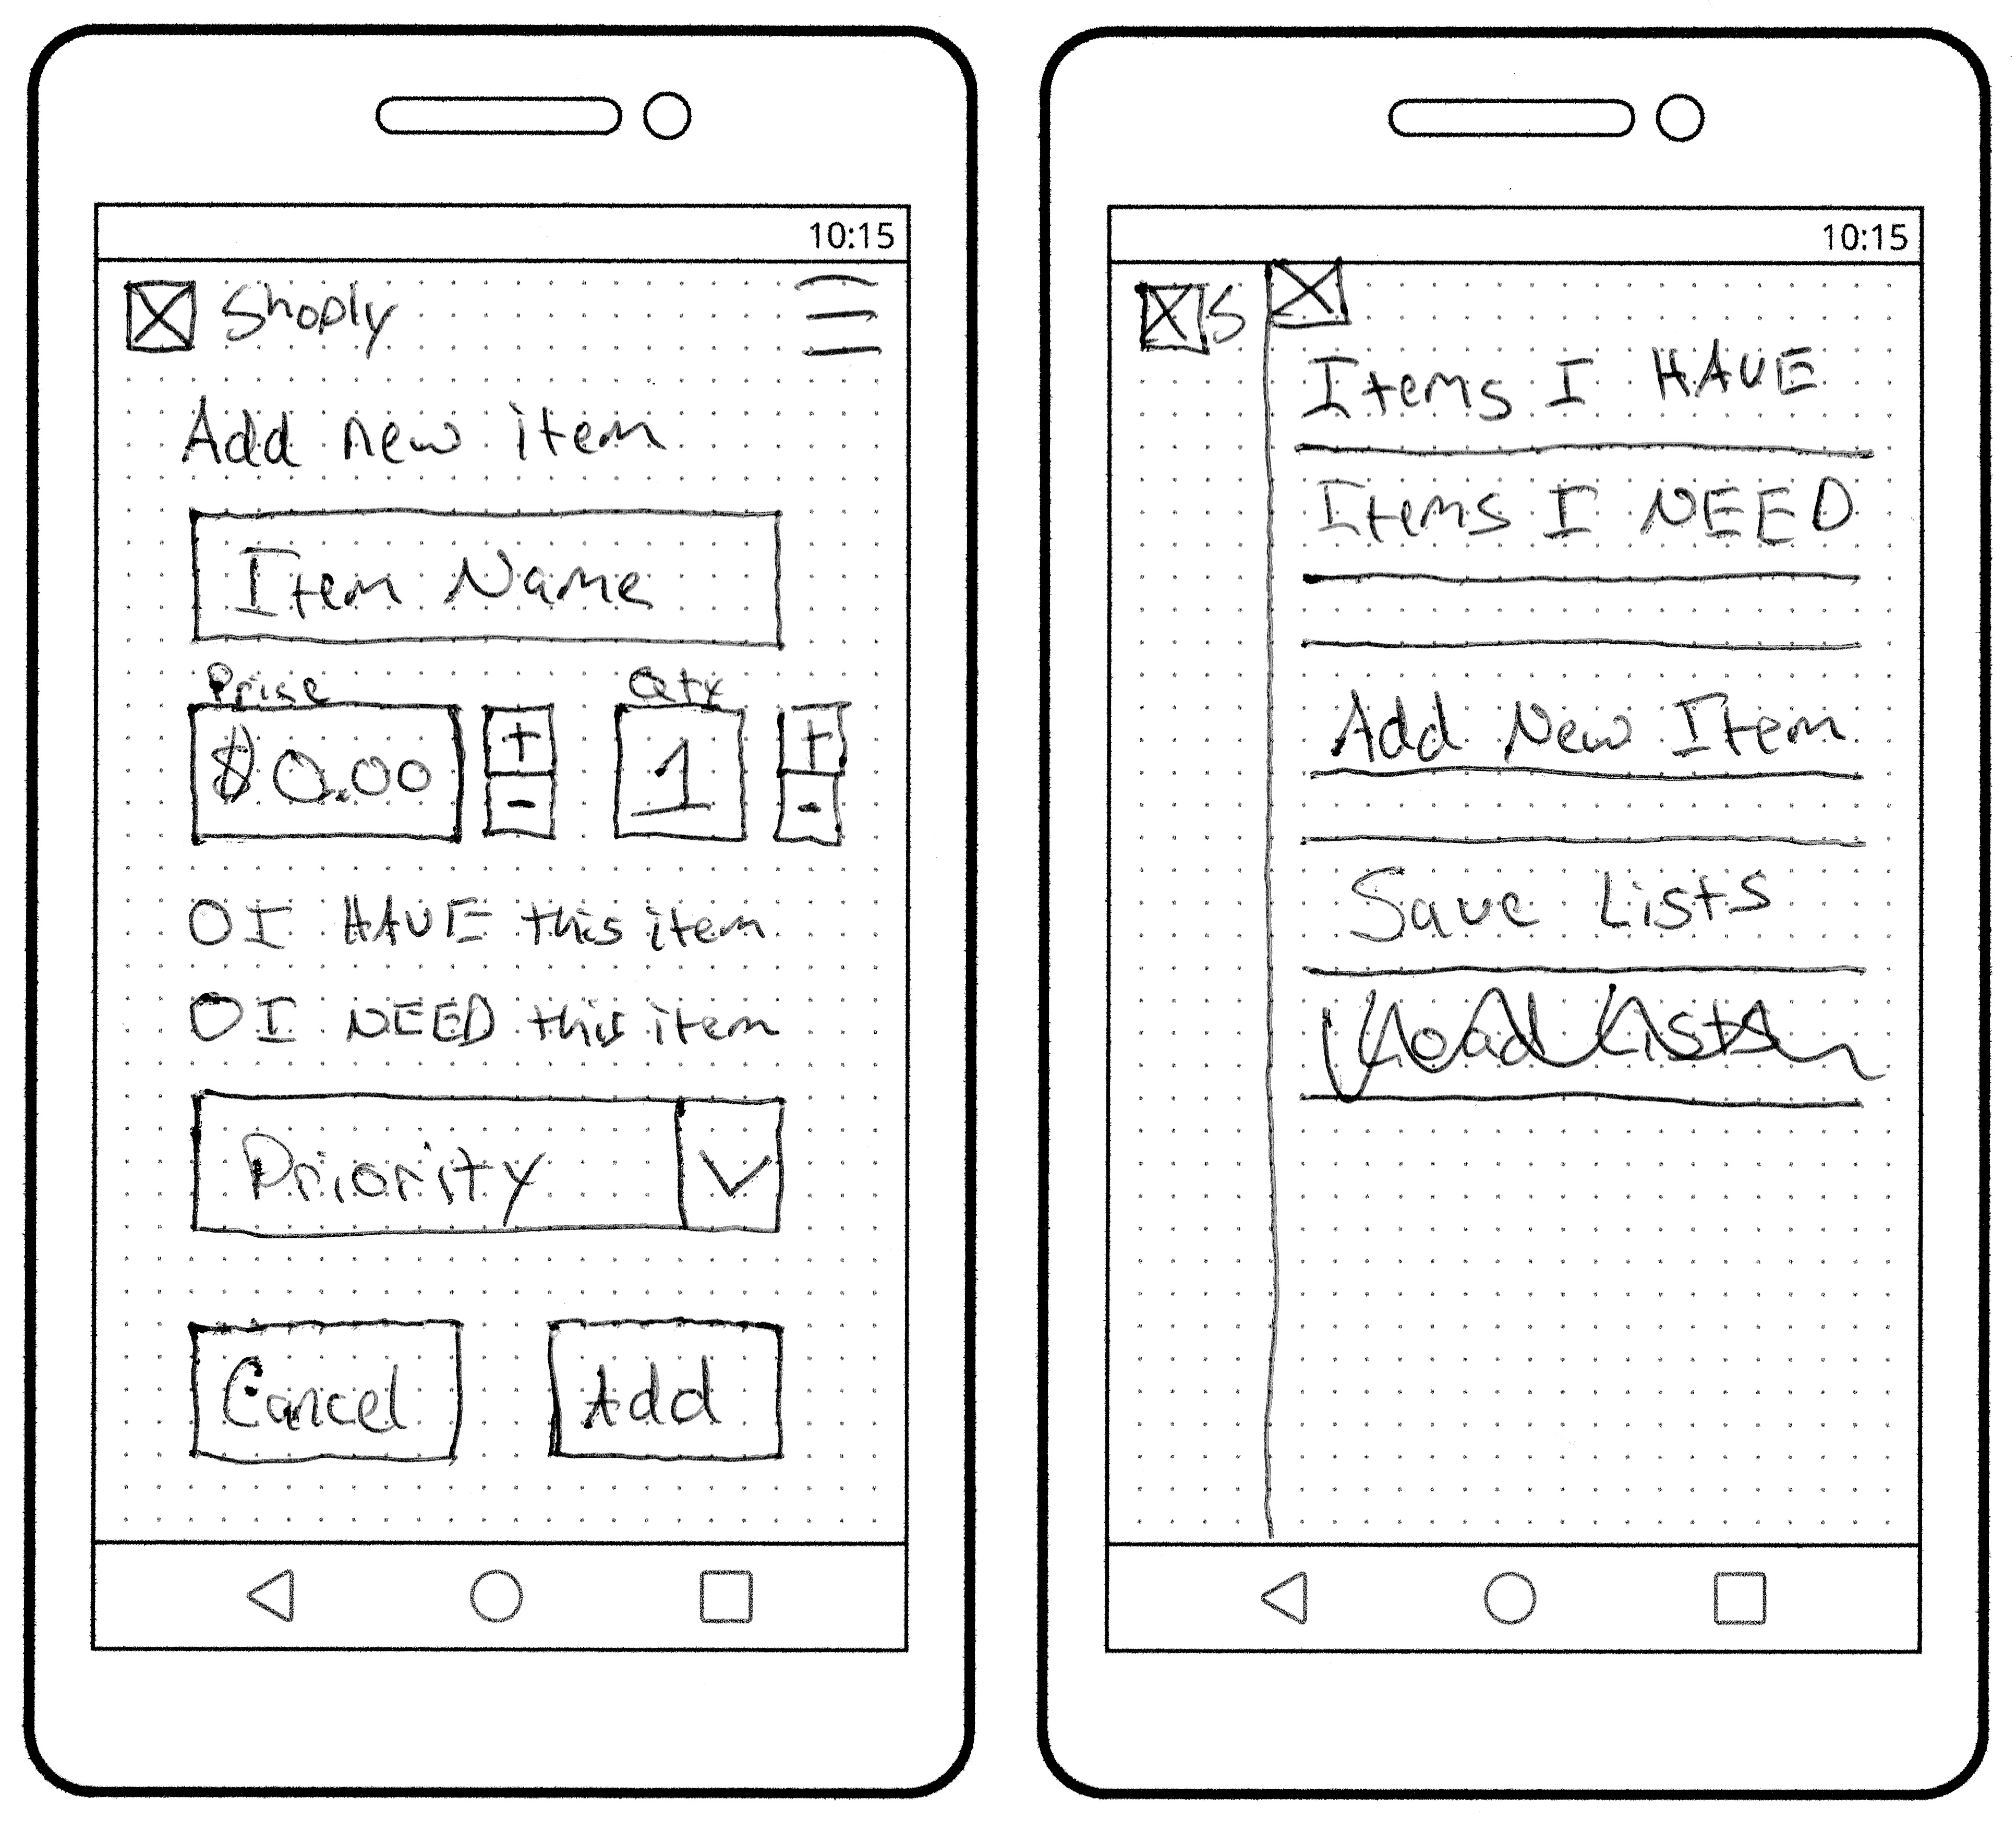 10:15
Shoply
Add new item
Item Name
Prise Qty
$0.00 + - 1 + -
O I HAVE this item
O I NEED this item
Priority
Cancel Add
10:15
S
Items I HAVE
Items I NEED
Add New Item
Save Lists
Load Lists